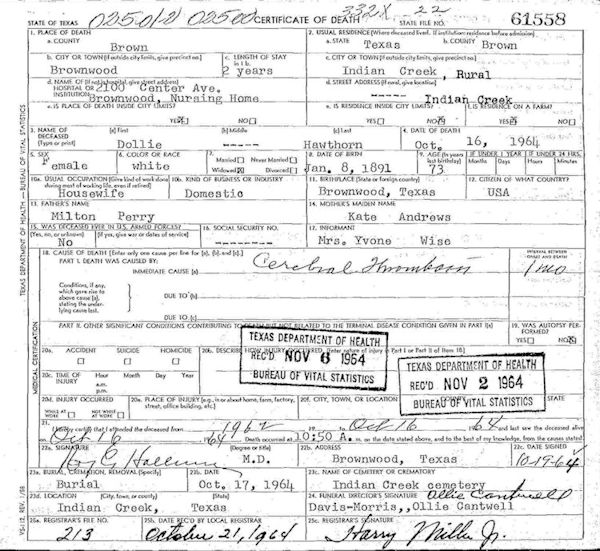 STATE OF TEXAS 02501-2 02500 CERTIFICATE OF DEATH 332X - 22 STATE FILE NO. 61558
1. PLACE OF DEATH
a. COUNTY
Brown
2. USUAL RESIDENCE (Where deceased lived. If institution: residence before admission)
a. STATE Texas b. COUNTY Brown
b. CITY OR TOWN (If outside city limits, give precinct no.)
Brownwood
c. LENGTH OF STAY in 1 b.
2 years
c. CITY OR TOWN (If outside city limits, give precinct no.)
Indian Creek, Rural
d. NAME OF (If not in hospital, give street address)
HOSPITAL OR INSTITUTION
2100 Center Ave.
Brownwood, Nursing Home
d. STREET ADDRESS (If rural, give location)
---- Indian Creek
e. IS PLACE OF DEATH INSIDE CITY LIMITS?
YES NO
e. IS RESIDENCE INSIDE CITY LIMITS?
YES NO
f. IS RESIDENCE ON A FARM?
YES NO
3. NAME OF DECEASED (Type or print)
(a) First (b) Middle (c) Last
Dollie ----- Hawthorn
4. DATE OF DEATH
Oct. 16, 1964
5. SEX
Female
6. COLOR OR RACE
White
7. Married Never Married
Widowed Divorced
8. DATE OF BIRTH
Jan. 8, 1891
9. AGE (In years last birthday)
73
IF UNDER 1 YEAR IF UNDER 24 HRS.
Months Days Hours Minutes
10a. USUAL OCCUPATION (Give kind of work done during most of working life, even if retired)
Housewife
10b. KIND OF BUSINESS OR INDUSTRY
Domestic
11. BIRTHPLACE (State or foreign country)
Brownwood, Texas
12. CITIZEN OF WHAT COUNTRY?
USA
13. FATHER'S NAME
Milton Perry
14. MOTHER'S MAIDEN NAME
Kate Andrews
15. WAS DECEASED EVER IN U.S. ARMED FORCES?
(Yes, no, or unknown) (If yes, give war or dates of service)
No
16. SOCIAL SECURITY NO.
------
17. INFORMANT
Mrs. Yvone Wise
18. CAUSE OF DEATH [Enter only one cause per line for (a), (b), and (c).]
PART I. DEATH WAS CAUSED BY:
IMMEDIATE CAUSE (a) Cerebral Thrombosis
INTERVAL BETWEEN ONSET AND DEATH
1 mo
Conditions, if any, which gave rise to above cause (a), stating the underlying cause last.
DUE TO (b)
DUE TO (c)
PART II. OTHER SIGNIFICANT CONDITIONS CONTRIBUTING TO DEATH BUT NOT RELATED TO THE TERMINAL DISEASE CONDITION GIVEN IN PART I(a)
19. WAS AUTOPSY PERFORMED?
YES NO
20a. ACCIDENT SUICIDE HOMICIDE
20b. DESCRIBE HOW INJURY OCCURRED. (Enter nature of injury in Part I or Part II of Item 18.)
TEXAS DEPARTMENT OF HEALTH
REC'D NOV 6 1964
BUREAU OF VITAL STATISTICS
TEXAS DEPARTMENT OF HEALTH
REC'D NOV 2 1964
BUREAU OF VITAL STATISTICS
20c. TIME OF INJURY
Hour Month Day Year
a.m.
p.m.
20d. INJURY OCCURRED
WHILE AT WORK NOT WHILE AT WORK
20e. PLACE OF INJURY (e.g., in or about home, farm, factory, street, office building, etc.)
20f. CITY, TOWN, OR LOCATION COUNTY STATE
21. I hereby certify that I attended the deceased from 1962 19 to Oct 16 1964 and last saw the deceased alive
on Oct 16 1964 Death occurred at 10:50 A. m. on the date stated above, and to the best of my knowledge, from the causes stated.
22a. SIGNATURE (Degree or title)
M.D.
22b. ADDRESS
Brownwood, Texas
22c. DATE SIGNED
10-19-64
23a. BURIAL, CREMATION, REMOVAL (Specify)
Burial
23b. DATE
Oct. 17, 1964
23c. NAME OF CEMETERY OR CREMATORY
Indian Creek cemetery
23d. LOCATION (City, town, or county) (State)
Indian Creek, Texas
24. FUNERAL DIRECTOR'S SIGNATURE
Ollie Cantwell
Davis-Morris,,Ollie Cantwell
25a. REGISTRAR'S FILE NO.
213
25b. DATE REC'D BY LOCAL REGISTRAR
October 21, 1964
25c. REGISTRAR'S SIGNATURE
Harry Miller Jr.
TEXAS DEPARTMENT OF HEALTH — BUREAU OF VITAL STATISTICS
MEDICAL CERTIFICATION
VS-112, REV. 1/58